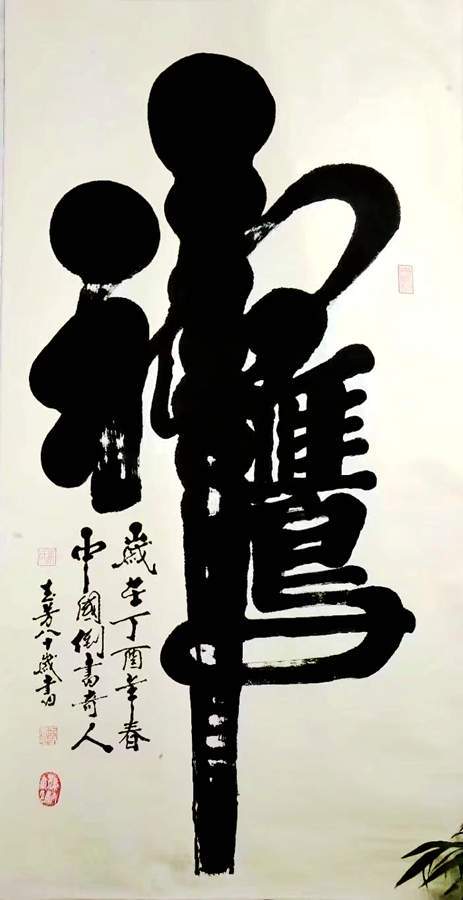 神鷹
歲在丁酉年春
中國倒書奇人
芳八十歲書